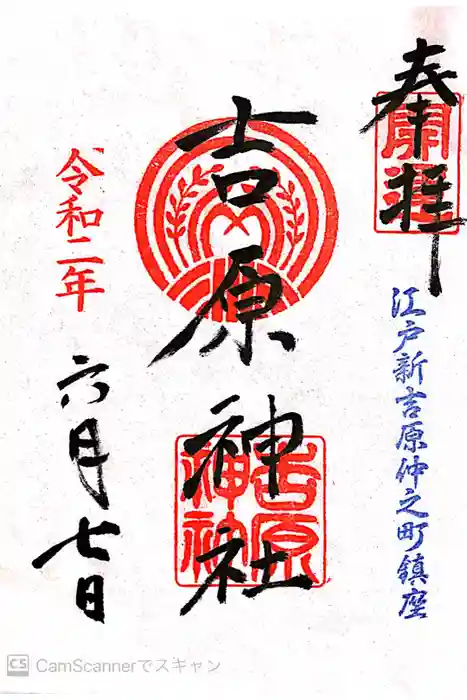 奉拝
開運
江戸新吉原仲之町鎮座
吉原神社
吉原神社
令和二年
六月七日
CS CamScannerでスキャン